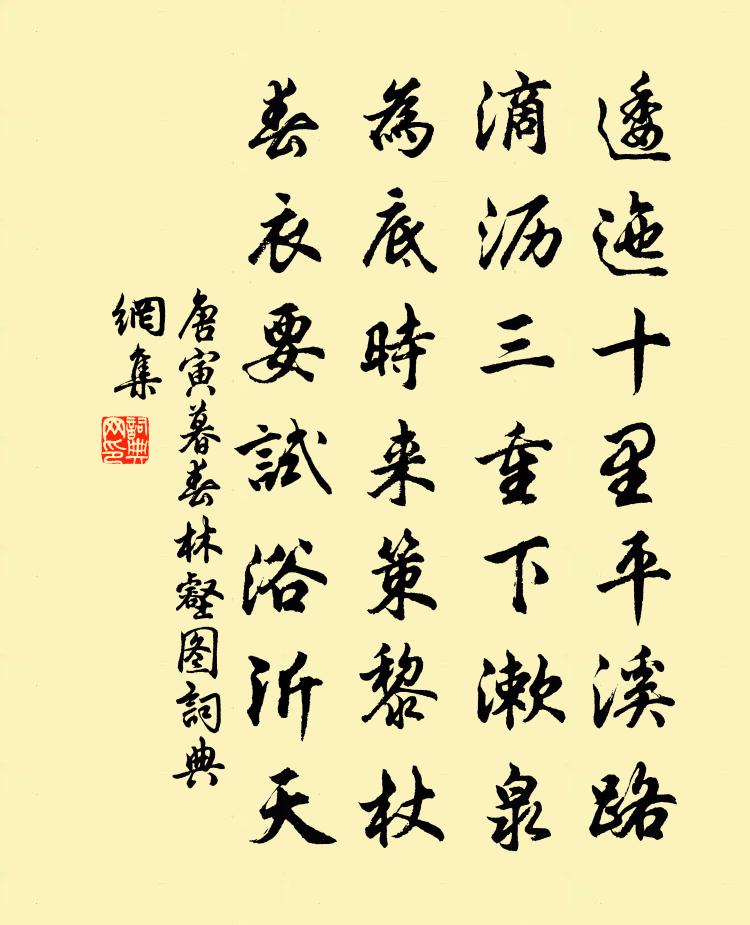 逶迤十里平溪路
滴沥三重下漱泉
為底時来策黎杖
春衣要試浴沂天
唐寅暮春林壑图詞典
網集
詞典
网印